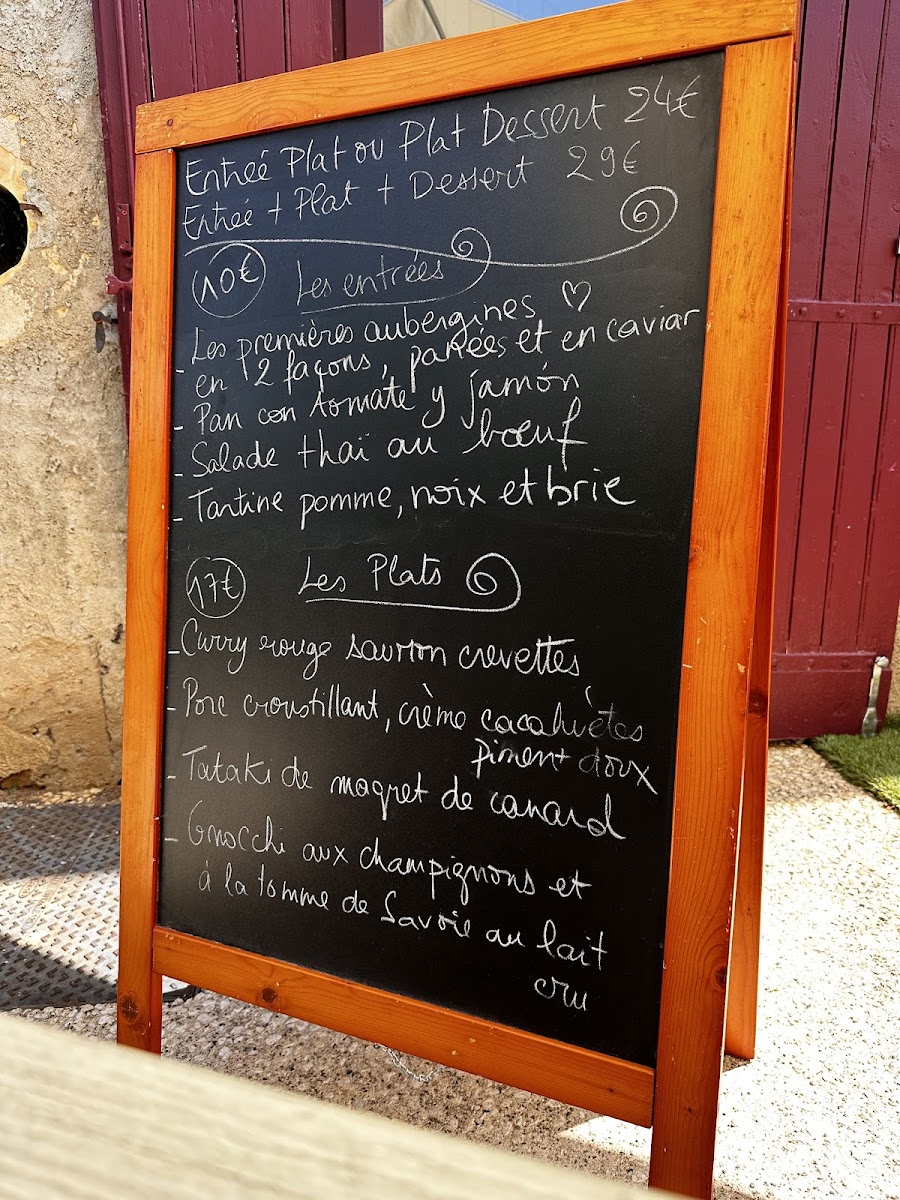 Entrée Plat ou Plat Dessert 24€
Entrée + Plat + Dessert 29€
10€ Les entrées
- Les premières aubergines ♡
en 2 façons, panées et en caviar
- Pan con tomate y jamón
- Salade thaï au bœuf
- Tartine pomme, noix et brie
17€ Les Plats
- Curry rouge saumon crevettes
- Porc croustillant, crème cacahuètes
piment doux
- Tataki de magret de canard
- Gnocchi aux champignons et
à la tomme de Savoie au lait
cru